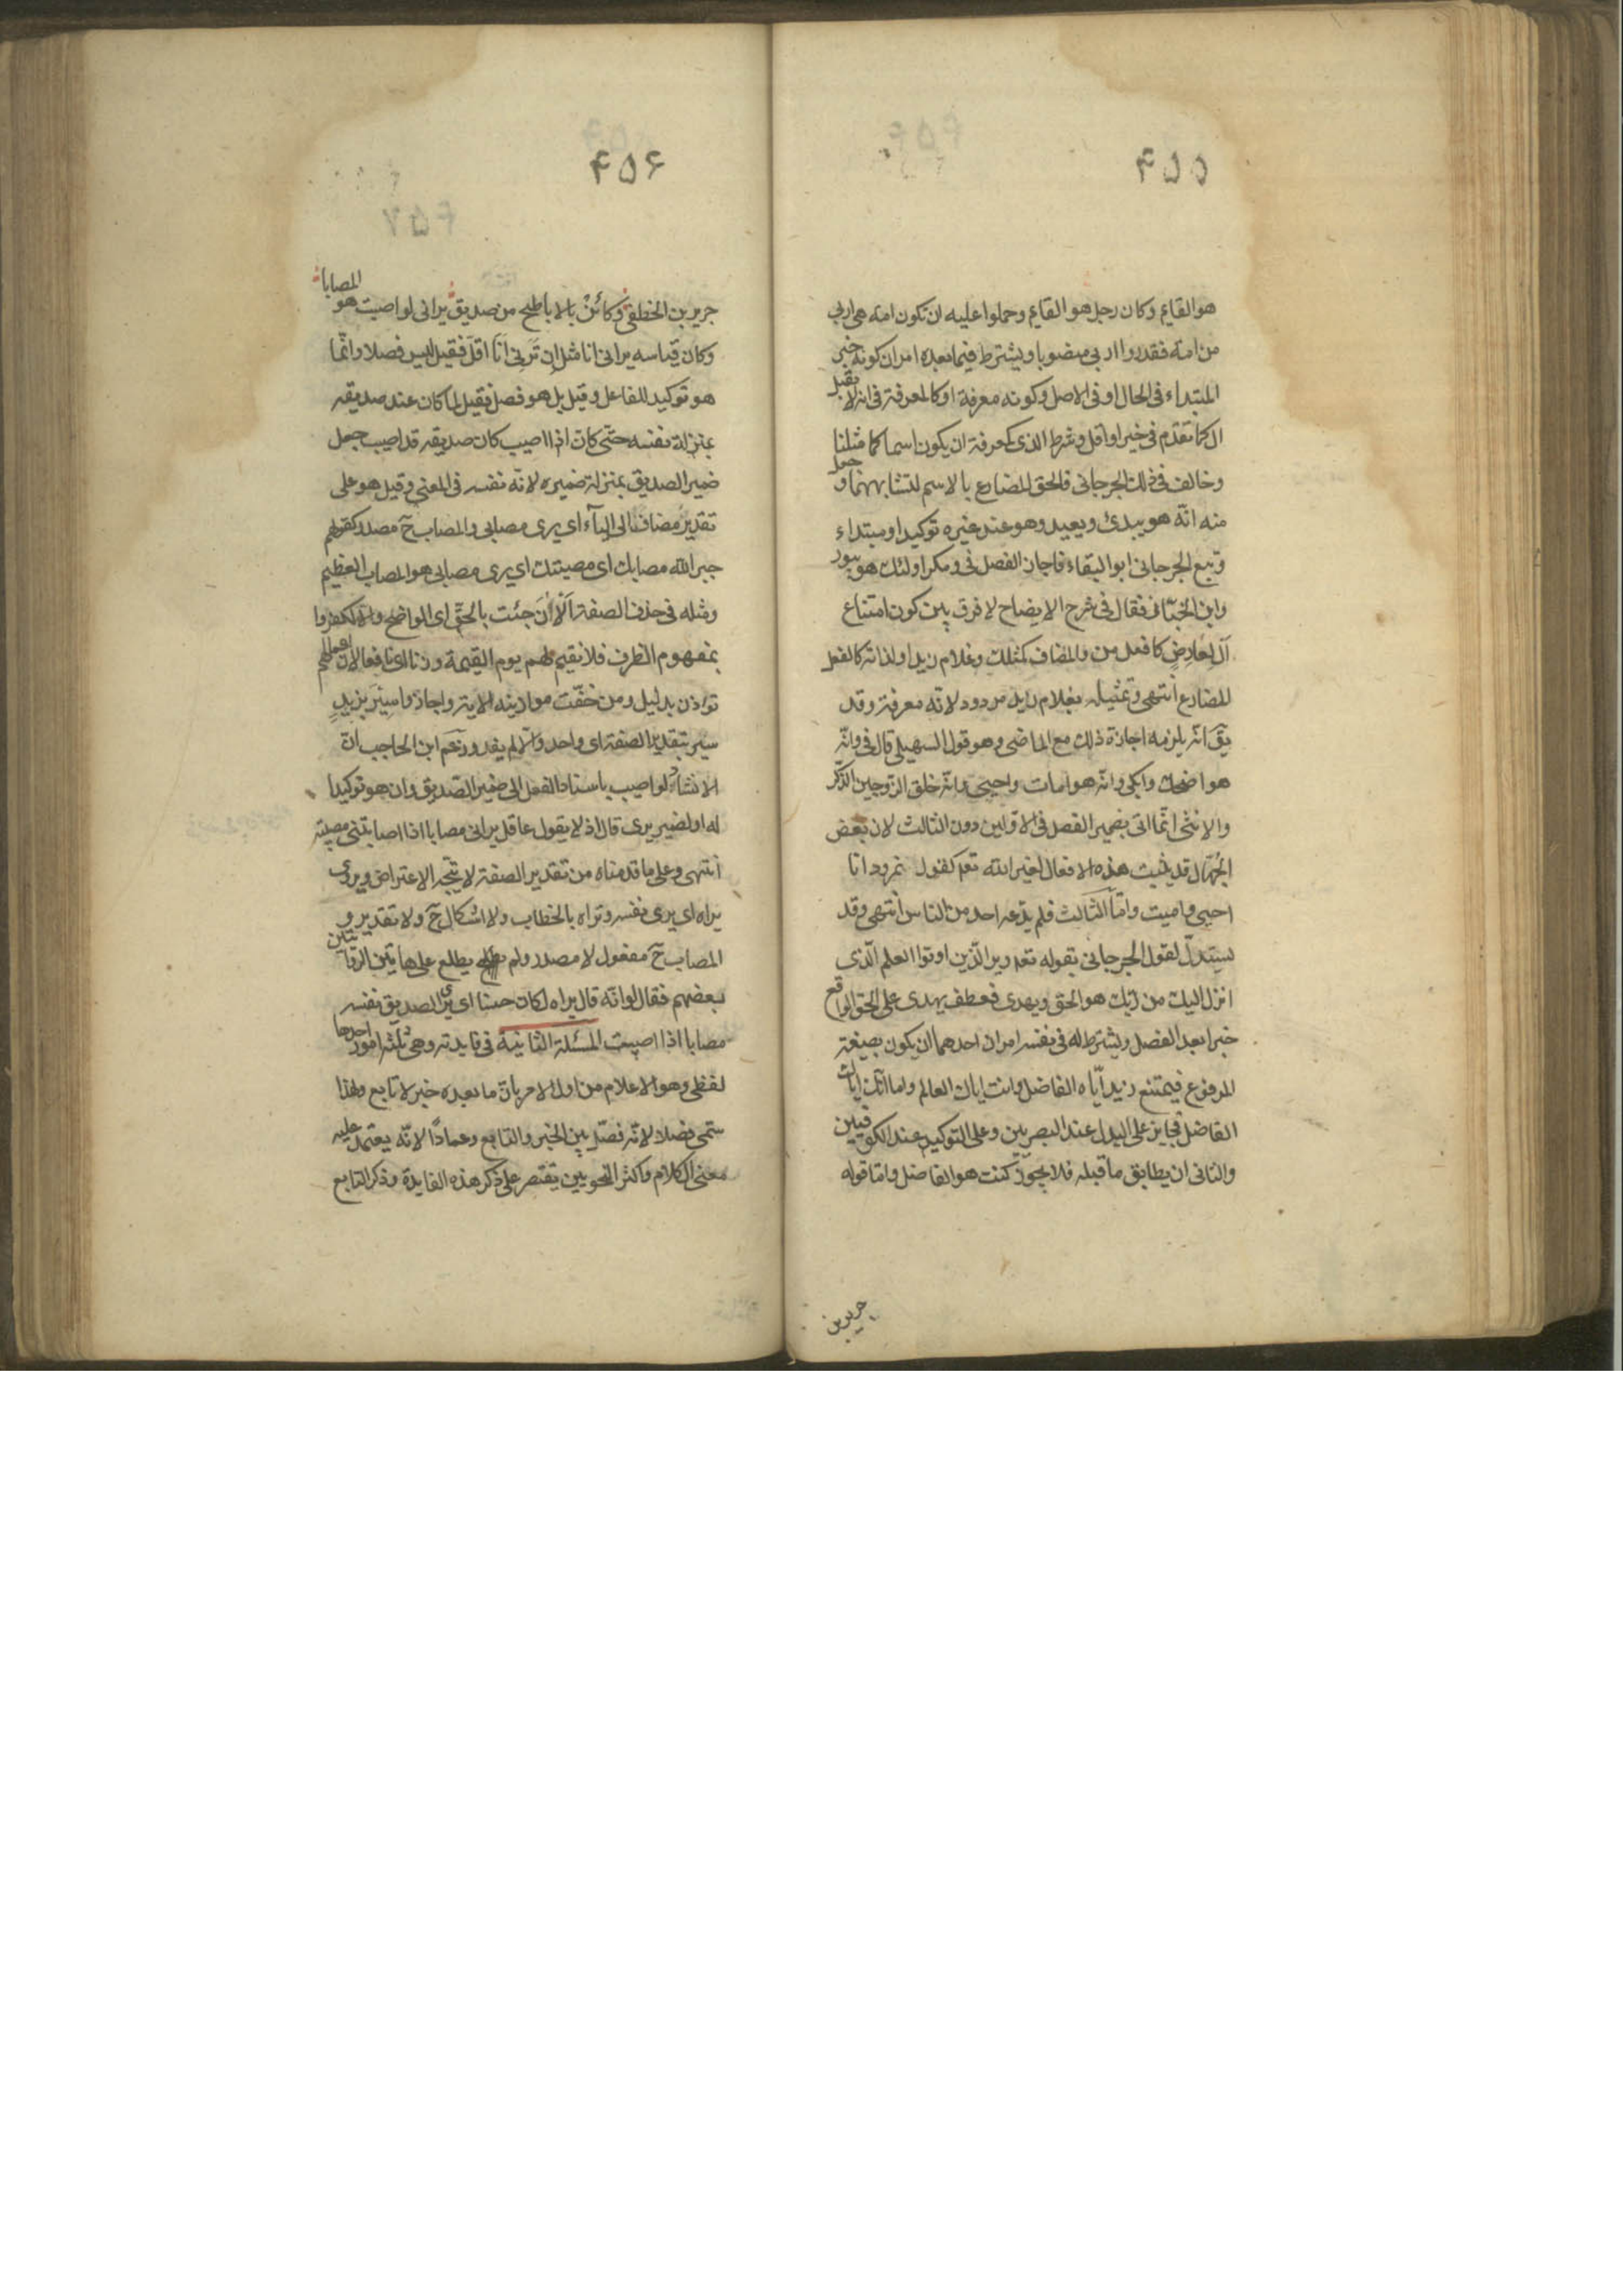 ۴۵۵
هو القايم وكان رجل هو القايم وحملوا عليه ان تكون امة هي اربي
من امة فقدروا اربي منصوبا ويشترط فيما بعده امران كونه خبر
المبتداء في الحال او في الاصل وكونه معرفة او كالمعرفة في انه لا يقبل
ال كما تقدم في خيرا واقل وشرط الذي كمعرفة ان يكون اسما كما مثلنا
وخالف في ذلك الجرجاني فالحق المضارع بالاسم لتشابههما و جعل
منه انّه هو يبدئ ويعيد وهو عند غيره توكيد او مبتداء
وتبع الجرجاني ابو البقاء فاجاز الفصل في ومكر اولئك هو يبور
وابن الخبّاز فقال في شرح الايضاح لا فرق بين كون امتناع
آل لعارضٍ كافعل من والمضاف كمثلك وغلام زيد او لذاته كالفعل
المضارع انتهى وتمثيله بغلام زيد مردود لانّه معرفة وقد
يقَ انّه يلزمه اجازة ذلك مع الماضي وهو قول السهيلي قال في وانّه
هو اضحك وابكى وانّه هو امات واحيى وانّه خلق الزّوجين الذّكر
والانثى انّما اتى بضمير الفصل في الاوّلين دون الثالث لان بعض
الجُهّال قد يثبت هذه الافعال لغير الله تعم كقول نمرود انا
احيي واميت وامّا الثّالث فلم يدّعه احد من النّاس انتهى وقد
يستدلّ لقول الجرجاني بقوله تعم ويرى الّذين اوتوا العلم الّذي
انزل اليك من ربّك هو الحق ويهدى فعطف يهدى على الحق الواقع
خبرا بعد الفصل ويشترط له في نفسه امران احدهما ان يكون بصيغة
المرفوع فيمتنع زيد ايّاه الفاضل وانت اياك العالم واما انّك اياك
الفاضل فجايز على البدل عند البصريين وعلى التوكيد عند الكوفيين
والثاني ان يطابق ما قبله فلا يجوز كنت هو الفاضل واما قوله
جرير بن
۴۵۶
جرير بن الخطفى وكائن بالاباطح من صديق يراني لو اصبت هو المصابا
وكان قياسه يراني انا مثل ان تَرَنِي اَنَا اقلّ فقيل ليس فصلا وانّما
هو توكيد للفاعل وقيل بل هو فصل فقيل لما كان عند صديقه
بمنزلة نفسه حتّى كان اذا اصيب كان صديقه قد اصيب جعل
ضمير الصديق بمنزلة ضميره لانّه نفسه في المعنى وقيل هو على
تقدير مضاف الى اليآء اي يرى مصابي والمصاب حَ مصدر كقولهم
جبر الله مصابك اي مصيبتك اي يرى مصابي هو المصاب العظيم
ومثله في حذف الصفة اَلْاٰنَ جئت بالحقّ اي الواضح والا لكفروا
بمفهوم الظرف فلا نقيم لهم يوم القيمة وزنا اي نافعا لان اعمالهم
توزن بدليل ومن خفّت موازينه الاية واجازوا سيْرَ بزيدٍ
سير بتقدير الصفة اي واحد والا لم يفد وزعم ابن الحاجب انّ
الانشاد لو اصيب باسناد الفعل الى ضمير الصّديق وان هو توكيد
له او لضمير يرى قال اذ لا يقول عاقل يراني مصابا اذا اصابتني مصيبة
انتهى وعلى ما قدمناه من تقدير الصفة لا يتّجه الاعتراض ويروى
يراه اي يرى نفسه وتراه بالخطاب ولا اشكال حَ ولا تقدير و
المصاب حَ مفعول لا مصدر ولم يطلع على هاتين الروايتين
بعضهم فقال لو انّه قال يراه لكان حسنا اي يرى الصديق نفسه
مصابا اذا اصبت المسئلة الثانية في فايدته وهي ثلثة امور احدها
لفظي وهو الاعلام من اول الامر بان ما بعده خبر لا تابع ولهذا
سمّى فصلا لانّه فصّل بين الخبر والتابع وعمادًا لانّه يعتمد عليه
معنى الكلام واكثر النحويين يقتصر على ذكر هذه الفايدة وذكر التابع